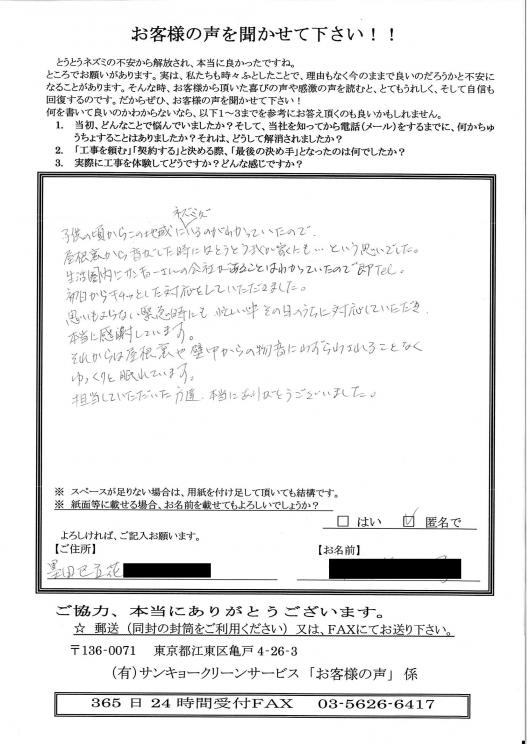 お客様の声を聞かせて下さい！！
とうとうネズミの不安から解放され、本当に良かったですね。
ところでお願いがあります。実は、私たちも時々ふとしたことで、理由もなく今のままで良いのだろうかと不安に
なることがあります。そんな時、お客様から頂いた喜びの声や感激の声を読むと、とてもうれしく、そして自信も
回復するのです。だからぜひ、お客様の声を聞かせて下さい！
何を書いて良いのかわからないなら、以下1～3までを参考にお答え頂くのも良いかもしれません。
1. 当初、どんなことで悩んでいましたか？そして、当社を知ってから電話（メール）をするまでに、何かちゅ
うちょすることはありましたか？それは、どうして解消されましたか？
2. 「工事を頼む」「契約する」と決める際、「最後の決め手」となったのは何でしたか？
3. 実際に工事を体験してどうですか？どんな感じですか？
ネズミが
子供の頃からこの地域にいるのがわかっていたので
屋根裏から音がした時にはとうとう我が家にも…という思いでした。
生活圏内に
の会社があることはわかっていたので即Tel。
初日からキチッとした対応をしていただきました。
思いもよらない緊急時にも忙しい中その日のうちに対応していただき
本当に感謝しています。
それからは屋根裏や壁中からの物音にわずらわされることなく
ゆっくりと眠れています。
担当していただいた方達、本当にありがとうございました。
※ スペースが足りない場合は、用紙を付け足して頂いても結構です。
※ 紙面等に載せる場合、お名前を載せてもよろしいでしょうか？
□ はい ☑ 匿名で
よろしければ、ご記入お願います。
【ご住所】 【お名前】
墨田区立花
ご協力、本当にありがとうございます。
☆ 郵送（同封の封筒をご利用ください）又は、FAXにてお送り下さい。
〒136-0071 東京都江東区亀戸 4-26-3
（有）サンキョークリーンサービス 「お客様の声」 係
365 日 24 時間受付FAX 03-5626-6417